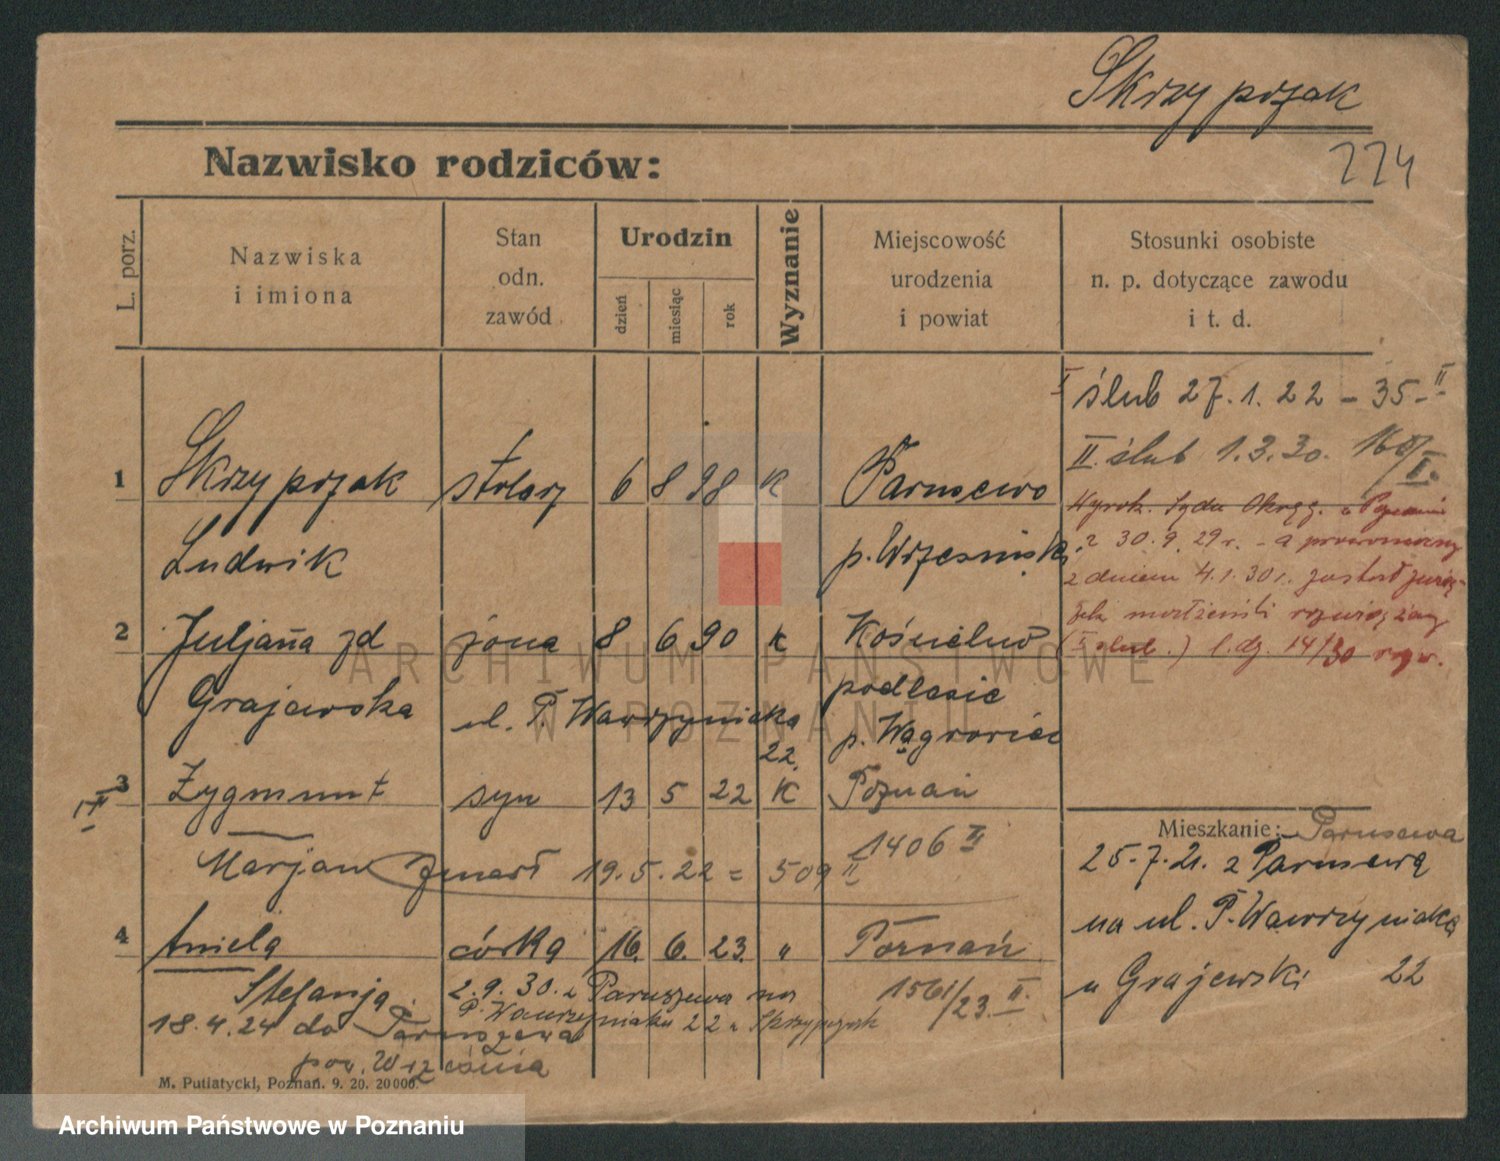 Skrzypczak
224
Nazwisko rodziców:
L. porz.
Nazwiska
i imiona
Stan
odn.
zawód
Urodzin
dzień
miesiąc
rok
Wyznanie
Miejscowość
urodzenia
i powiat
Stosunki osobiste
n. p. dotyczące zawodu
i t. d.
I ślub 27.1.22 – 35–II
II. ślub 1.3.30. 160/II.
1 Skrzypczak stolarz 6 8 98 k Parusewo
Ludwik p. Wrzesiński
Wyrok. Sądu Okręg. w Poznaniu
z 30.9.29 r. – a prawomocny
z dniem 4.1.30 r. został zwią-
zek małżeński rozwiązany
(I ślub.) l. dz. 14/30 rozw.
2 Juljanna zd żona 8 6 90 k Kościelno
Grajewska ul. P. Wawrzyniaka 22. podlesie
p. Wągrowiec
3 Zygmunt syn 13 5 22 K Poznań
II
Marjan zmarł 19.5.22 = 509 II 1406 II
Mieszkanie: Parusewa
25.7.21. z Parusewa
na ul. P. Wawrzyniaka
u Grajewski 22
4 Aniela córka 16. 6. 23. " Poznań
Stefanja 1561/23. II.
2.9.30. z Paruszewa na
P. Wawrzyniaka 22 u Skrzypczak
18.4.24 do Paruszewa
pow. Września
M. Putiatycki, Poznań. 9. 20. 20000.
ARCHIWUM PAŃSTWOWE
W POZNANIU
Archiwum Państwowe w Poznaniu